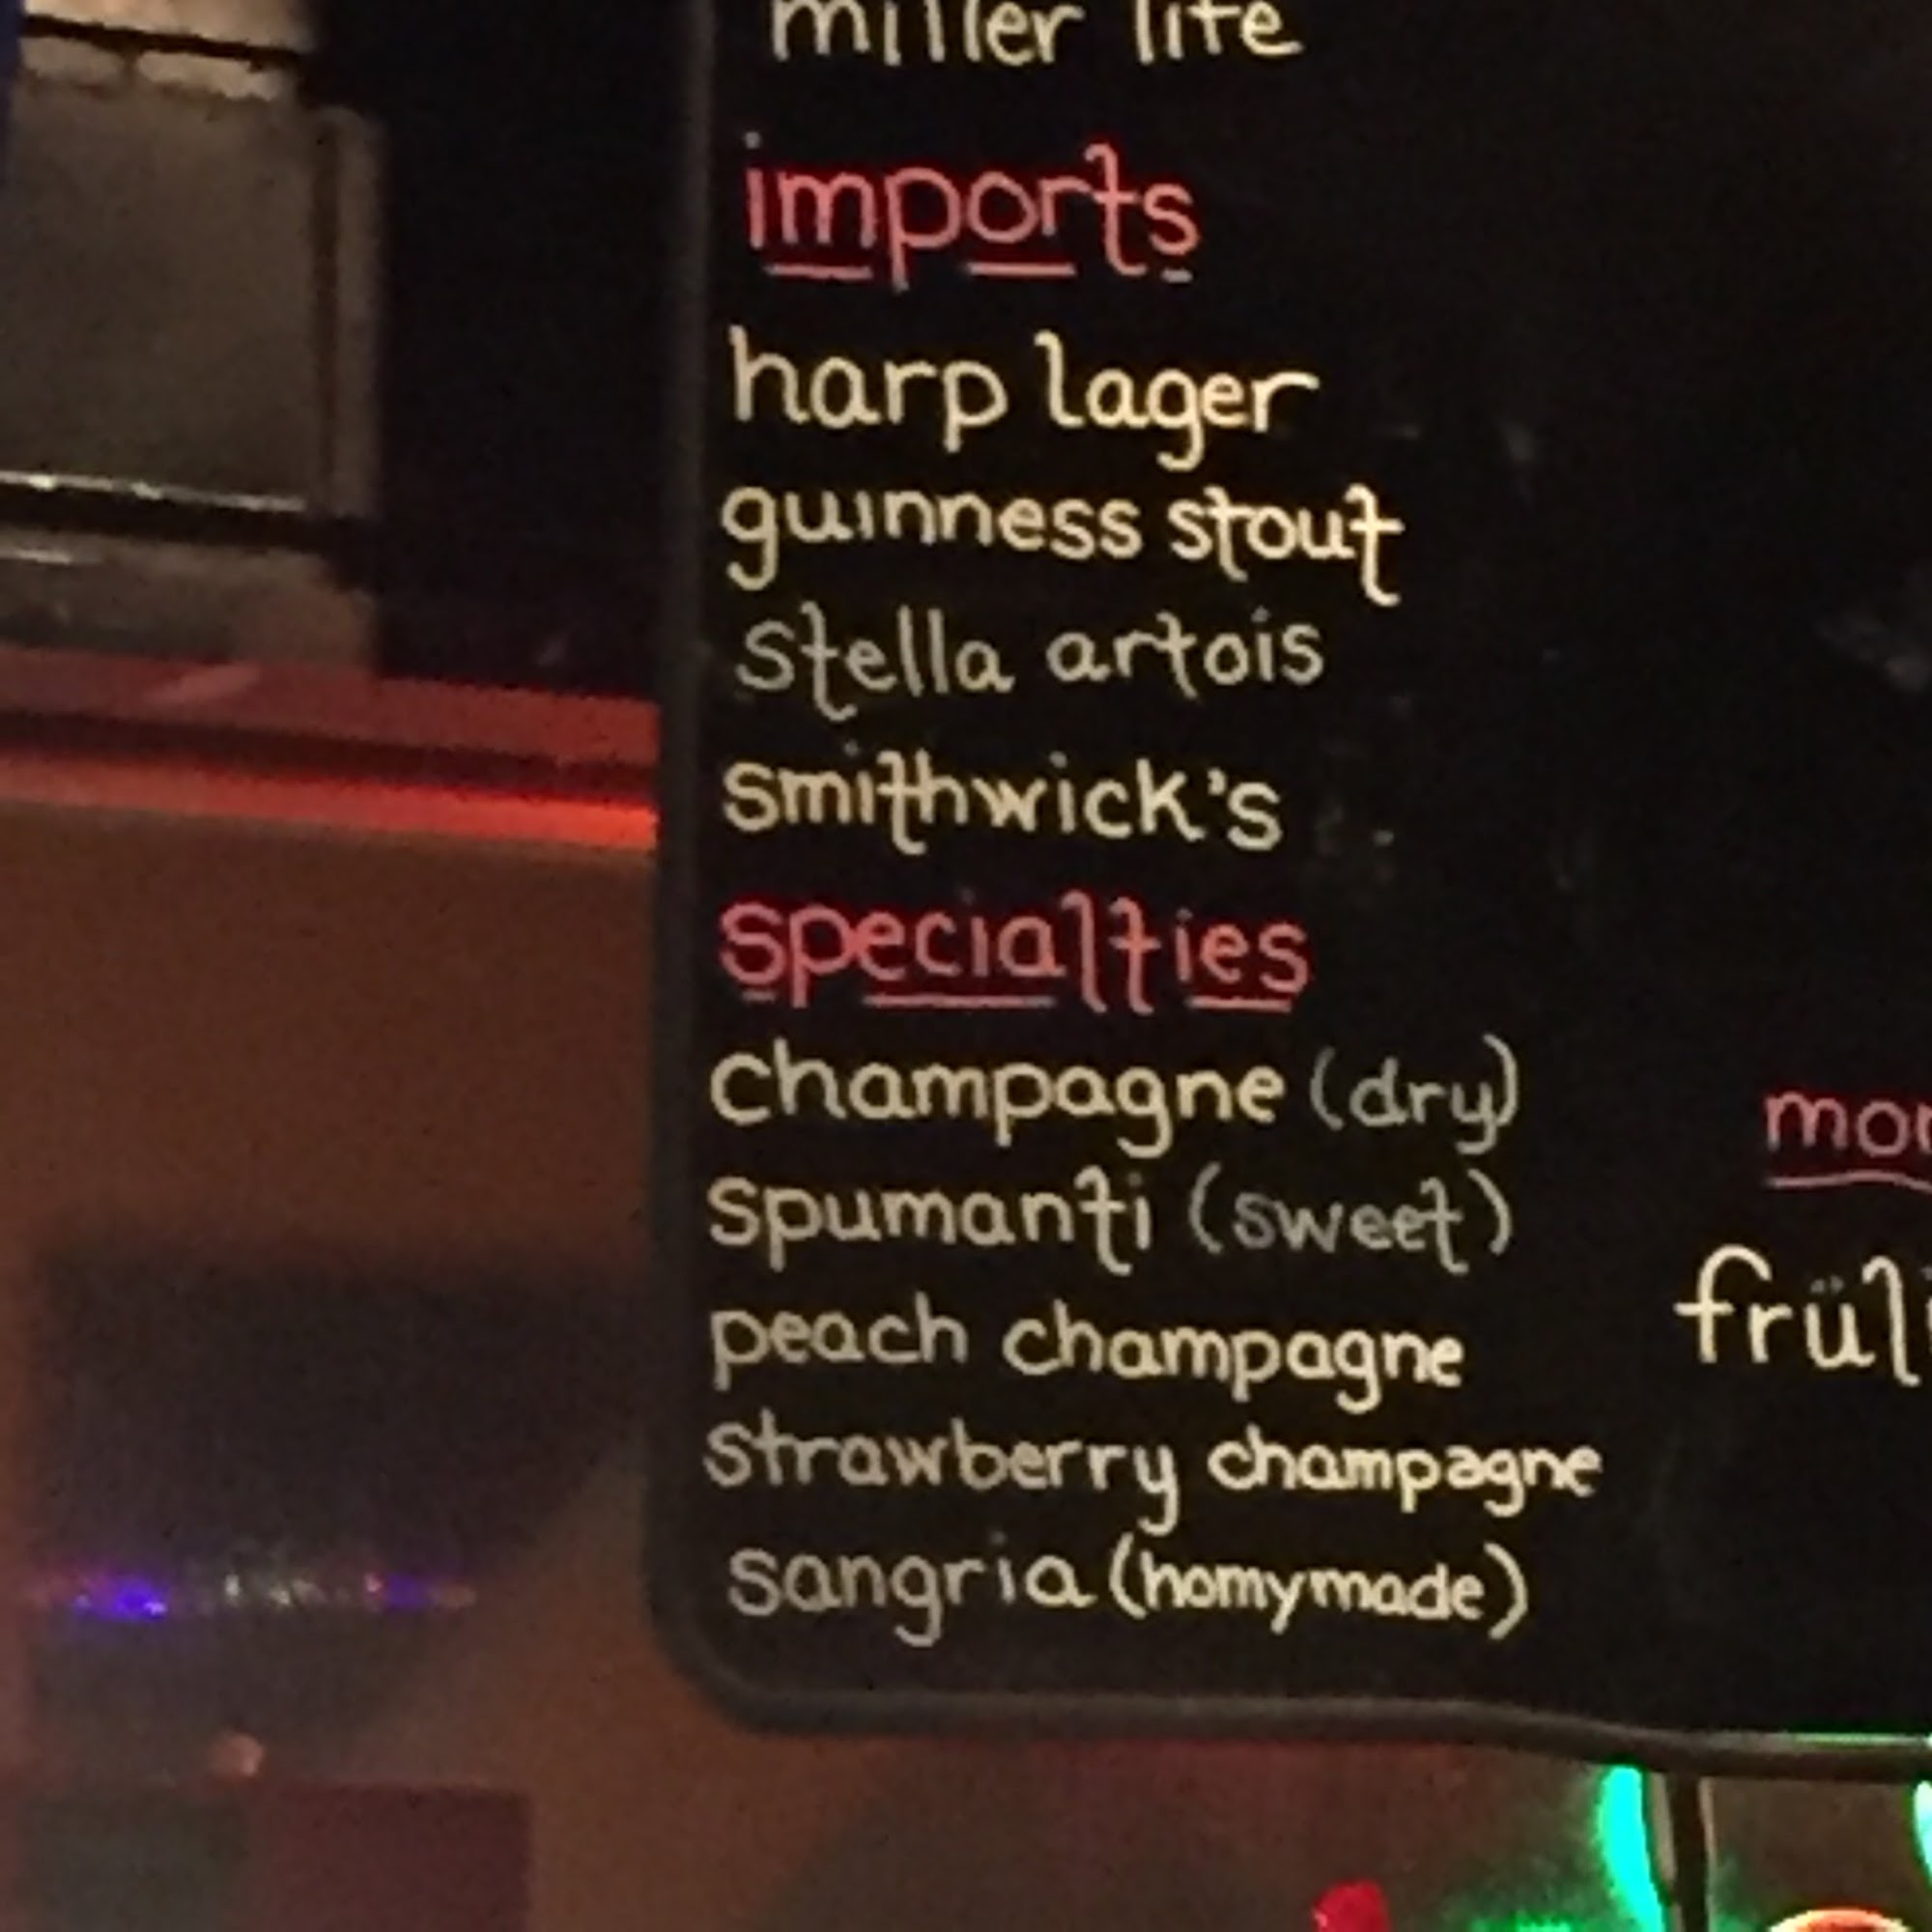 miller lite
imports
harp lager
guinness stout
stella artois
smithwick's
specialties
champagne (dry)
spumanti (sweet)
peach champagne
strawberry champagne
sangria (homymade)